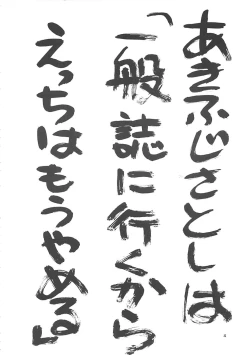 あきふじさとしは
「一般誌に行くから
えっちはもうやめる」